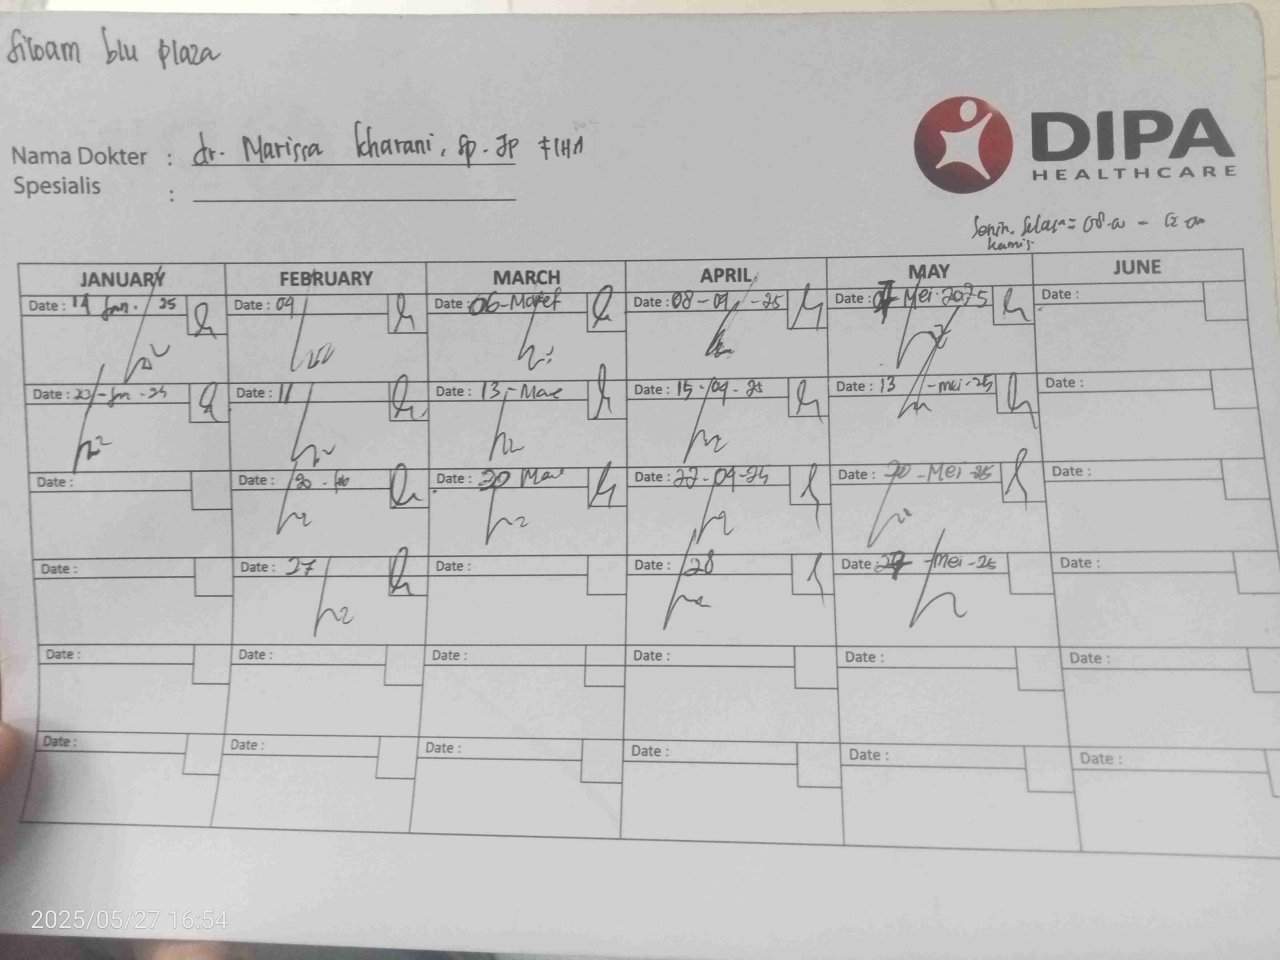 Siloam blu plaza
DIPA
HEALTHCARE
Nama Dokter : dr. Marissa Kharani, Sp. JP FIHA
Spesialis :
Senin. Selasa = 08.00 -
kamis
JANUARY FEBRUARY MARCH APRIL MAY JUNE
Date : 14 Jan. 25 Date : 04 Date : 06-Maret Date : 08-04-25 Date : Mei-2025 Date :
Date : 20-Jan-25 Date : 11 Date : 13-Mar Date : 15-04-25 Date : 13-mei-25 Date :
Date : Date : 20-feb Date : 20 Mar Date : 22-04-25 Date : 20-Mei-25 Date :
Date : Date : 27 Date : Date : 28 Date : 27-mei-25 Date :
Date : Date : Date : Date : Date : Date :
Date : Date : Date : Date : Date : Date :
2025/05/27 16:54